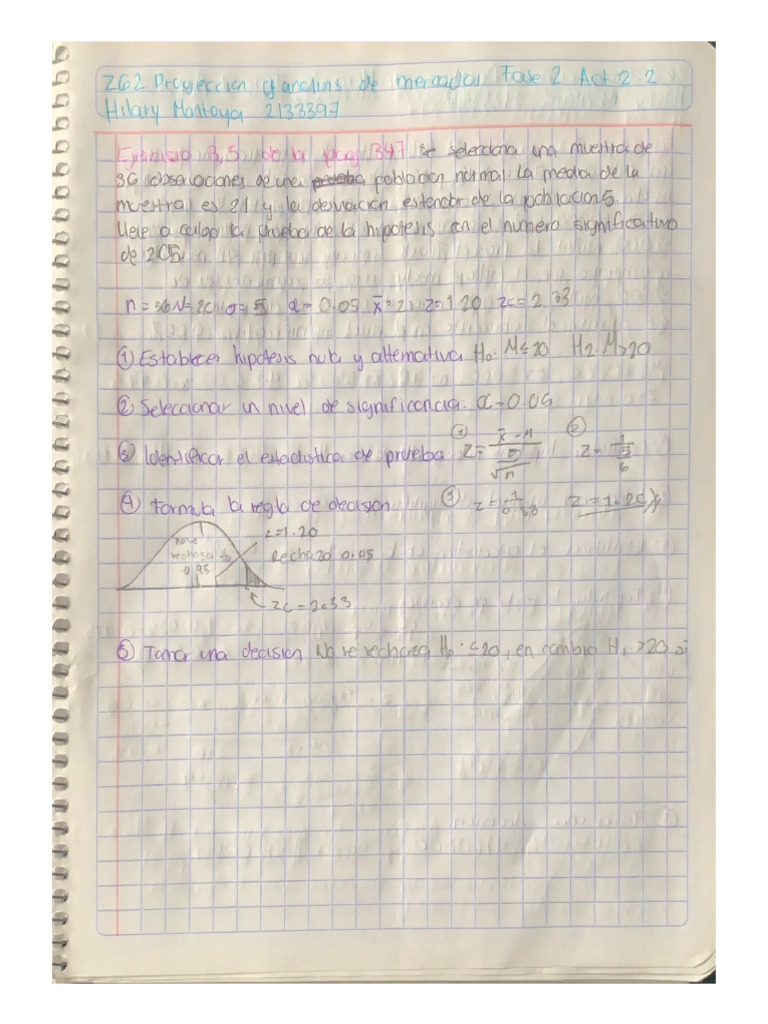 262 Proyeccion y analisis de mercados Fase 2 Act 2.2
Hilary Montoya 2133397
Ejercicio 3,5 de la pag 347 se selecciona una muestra de
36 observaciones de una prueba poblacion normal. La media de la
muestra es 21 y la desviacion estandar de la poblacion 5.
lleve a cabo la prueba de la hipotesis con el numero significativo
de 205.
n = 36 N= 20 σ= 5 α= 0.05 x̄=21 z=1.20 zc= 2.33
① Establecer hipotesis nula y alternativa Ho: M≤20 H2: M>20
② Seleccionar un nivel de significancia: α=0.05
③ Identificar el estadistico de prueba ① Z= x̄-M / 5 / √n ② Z= 1 / 5 / 6
④ Formula la regla de decision ③ z= 1 / 0.83 Z=1.20
z=1.20
No se rechaza Ho 0.95
Rechazo 0.05
zc=2.33
⑤ Tomar una decision No se rechaza Ho: ≤20, en cambio H1 >20 si